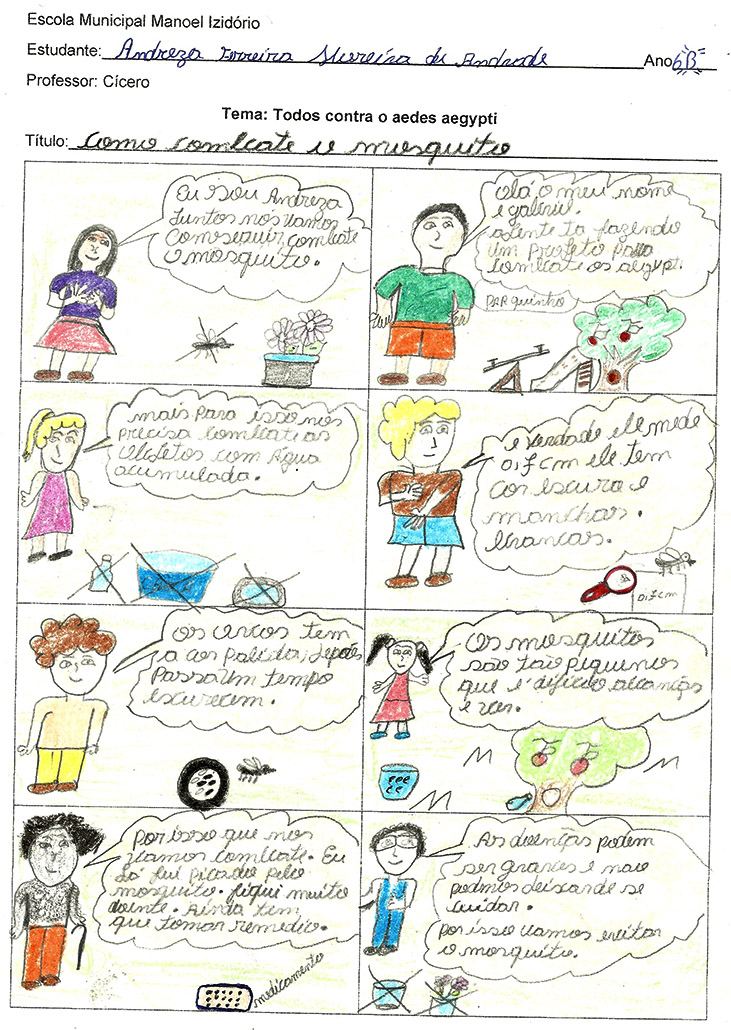 Escola Municipal Manoel Izidório
Estudante: Andreza Ferreira Moreira de Andrade Ano 6B
Professor: Cícero
Tema: Todos contra o aedes aegypti
Título: Como combate o mosquito
Eu sou Andreza
Juntos nos vamos
conseguir combate
o mosquito.
Olá o meu nome
e gabriel.
a gente ta fazendo
um projeto para
combate os aegypt.
parquinho
mais para isso nos
precisa combati as
objetos com água
acumulada.
e verdade ele mede
0,7cm ele tem
cor escura e
manchas.
brancas.
0,7cm
Os ovos tem
a cor palida, depois
passa um tempo
escurecem.
Os mosquitos
são tão piquenos
que é dificio alcançar
e ver.
por isso que nos
vamos combate. Eu
já fui picardo pelo
mosquito. fiqui muito
doente. Ainda tem
que tomar remedio.
medicamento
As doenças podem
ser graves e nao
podmos deixar de se
cuidar.
por isso vamos evitar
o mosquito.